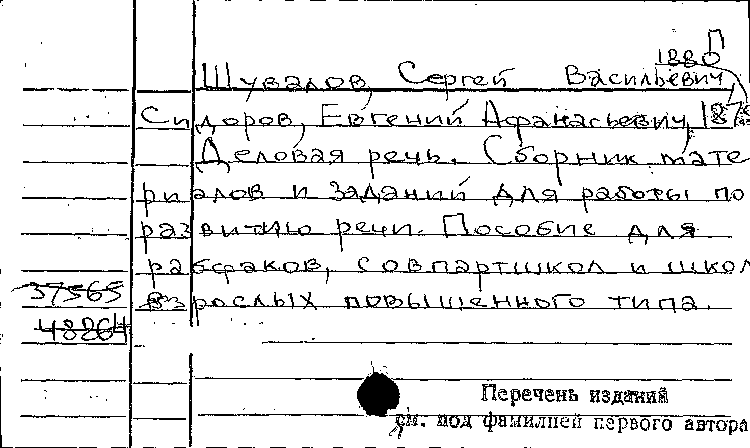 П
1880
Шувалов, Сергей Васильевич
Сидоров, Евгений Афанасьевич,
Деловая речь. Сборник мате
риалов и заданий для работы по
развитию речи. Пособие для
рабфаков, совпартшкол и школ
взрослых повышенного типа.
37565
48264
Перечень изданий
см. под фамилией первого автора